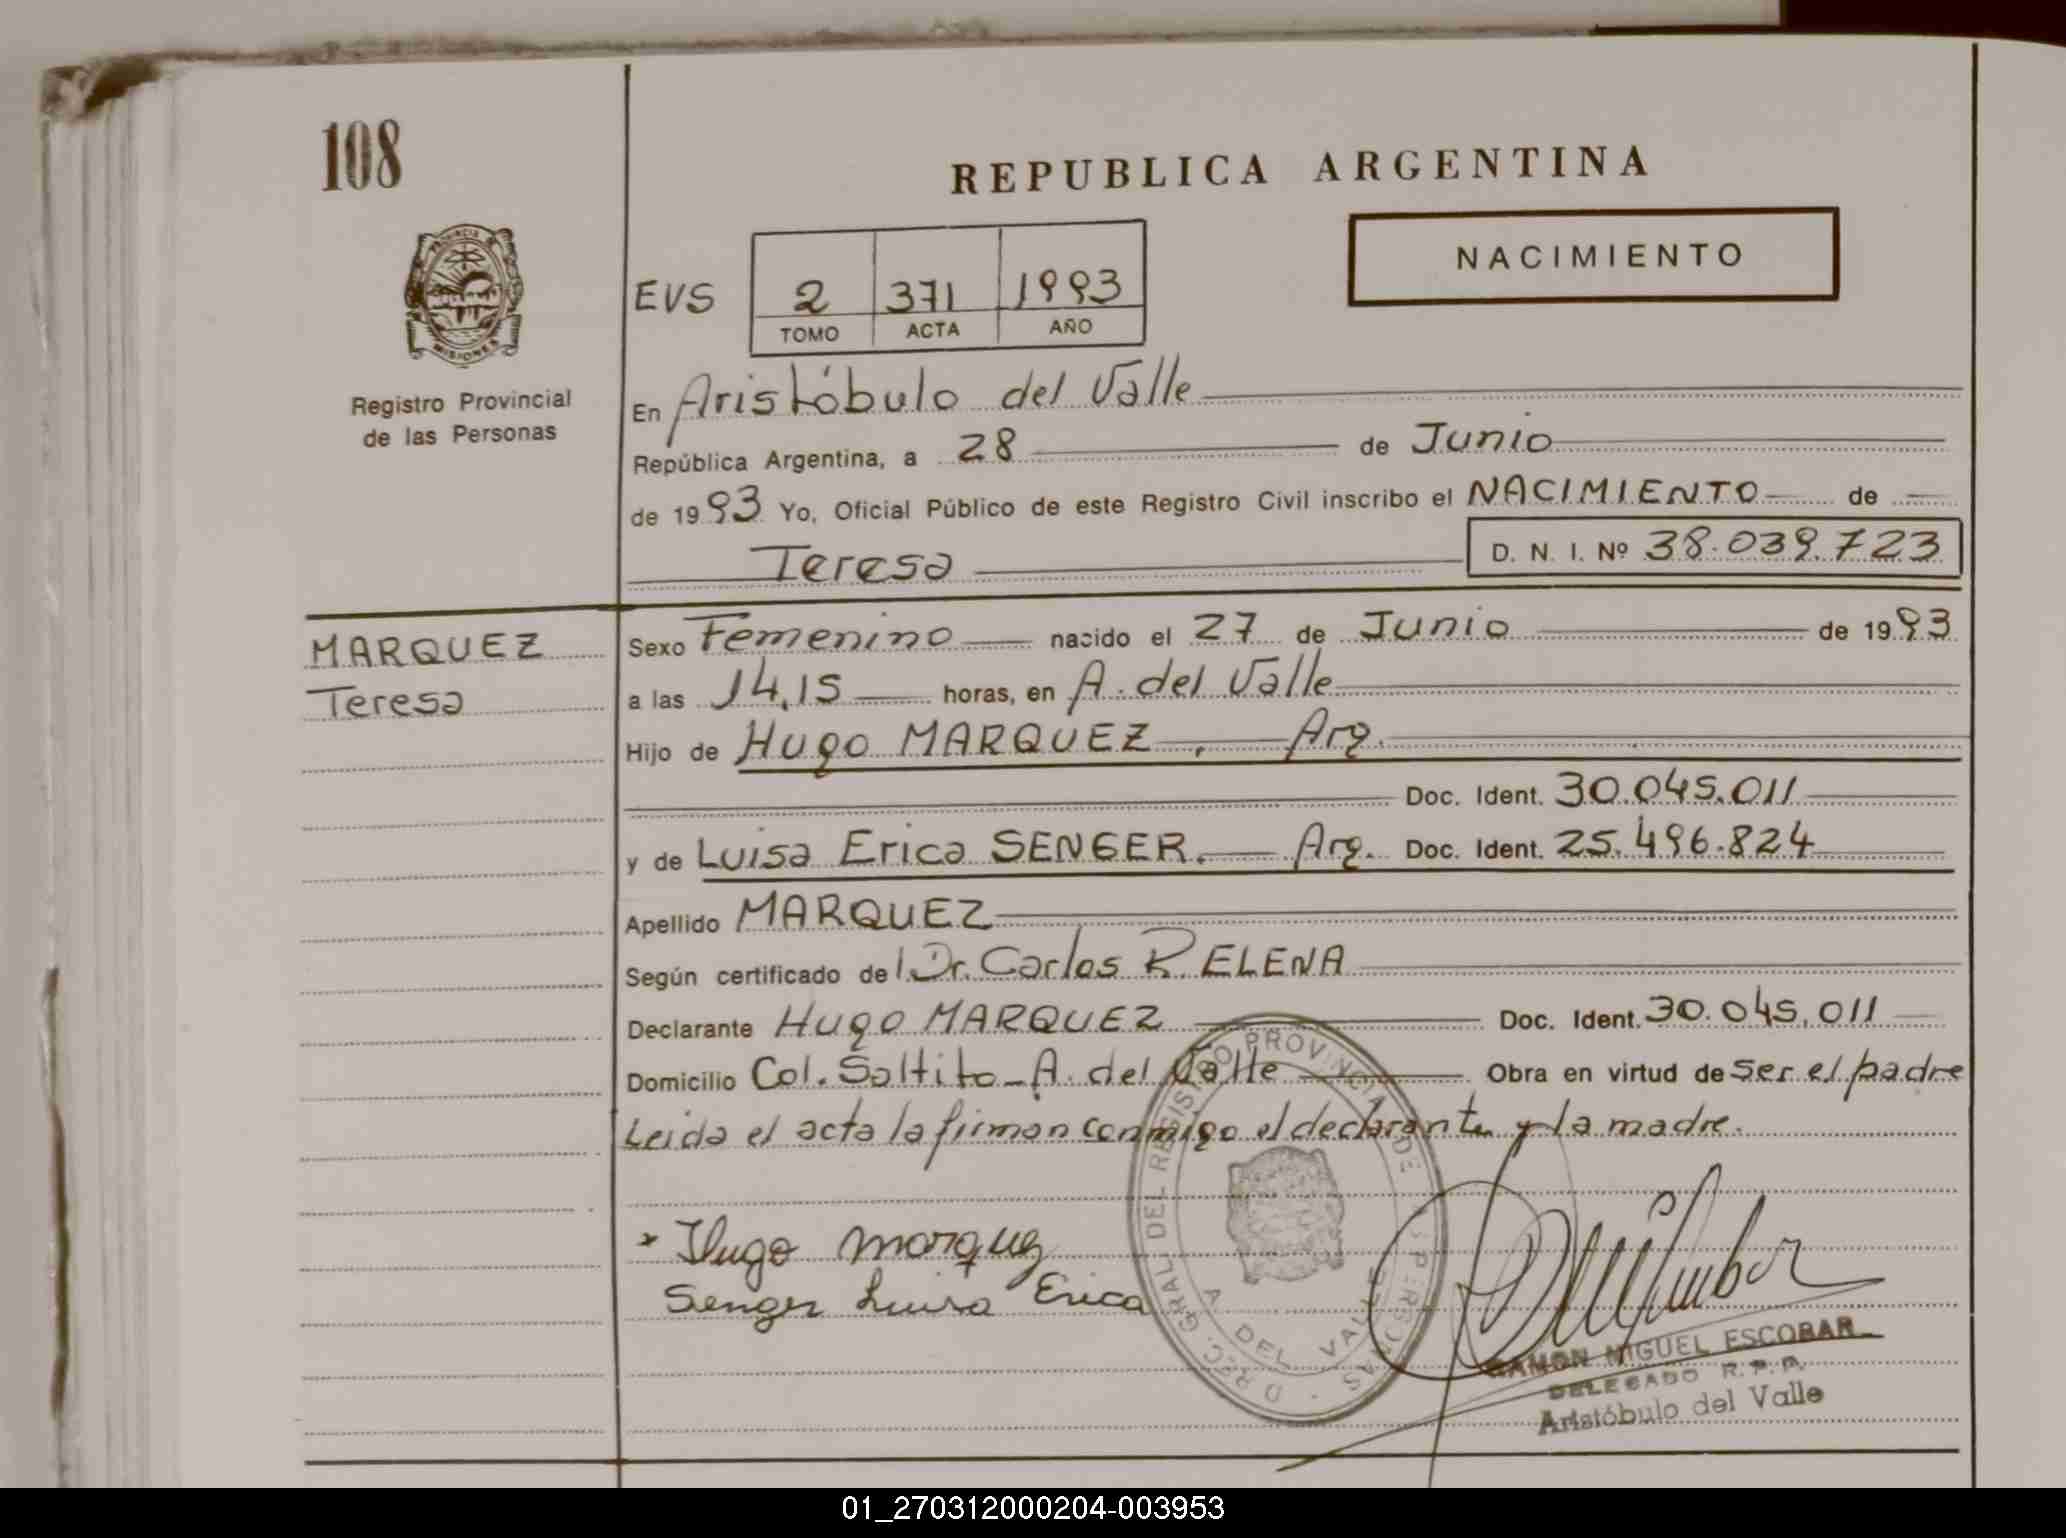 108
REPUBLICA ARGENTINA
NACIMIENTO
PROVINCIA DE
MISIONES
Registro Provincial
de las Personas
EVS 2 371 1993
TOMO ACTA AÑO
En Aristóbulo del Valle
República Argentina, a 28 de Junio
de 1993 Yo, Oficial Público de este Registro Civil inscribo el NACIMIENTO de
Teresa D. N. I. Nº 38.039.723
MARQUEZ
Teresa
Sexo Femenino nacido el 27 de Junio de 1993
a las 14,15 horas, en A. del Valle
Hijo de Hugo MARQUEZ. Arg.
Doc. Ident. 30.045.011
y de Luisa Erica SENGER. Arg. Doc. Ident. 25.496.824
Apellido MARQUEZ
Según certificado del Dr. Carlos R. ELENA
Declarante Hugo MARQUEZ Doc. Ident. 30.045.011
Domicilio Col. Saltito_A. del Valle Obra en virtud de ser el padre
Leida el acta la firman conmigo el declarante y la madre.
Hugo Marquez
Senger Luisa Erica
DIREC. GRAL DEL REGISTRO PROVINCIAL DE LAS PERSONAS
A DEL VALLE
RAMON MIGUEL ESCOBAR
DELEGADO R.P.P.
Aristóbulo del Valle
01_270312000204-003953